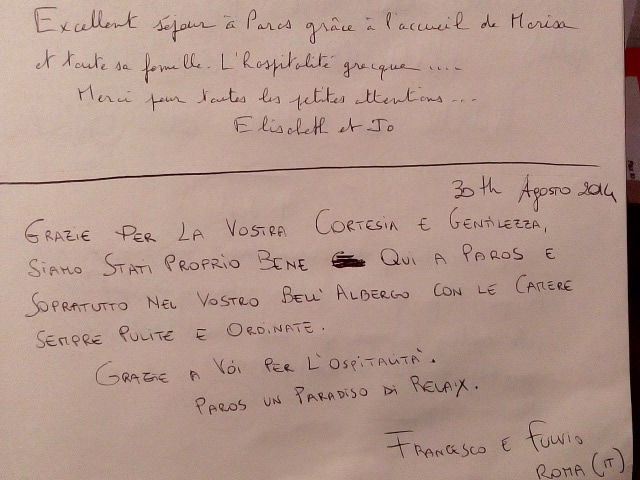 Excellent séjour à Paros grâce à l'accueil de Marisa
et toute sa famille. L'hospitalité grecque ....
Merci pour toutes les petites attentions...
Elisabeth et Jo
30th Agosto 2014
GRAZIE PER LA VOSTRA CORTESIA E GENTILEZZA,
SIAMO STATI PROPRIO BENE QUI A PAROS E
SOPRATUTTO NEL VOSTRO BELL'ALBERGO CON LE CAMERE
SEMPRE PULITE E ORDINATE.
GRAZIE A VOI PER L'OSPITALITÀ.
PAROS UN PARADISO DI RELAX.
FRANCESCO E FULVIO
ROMA (IT)